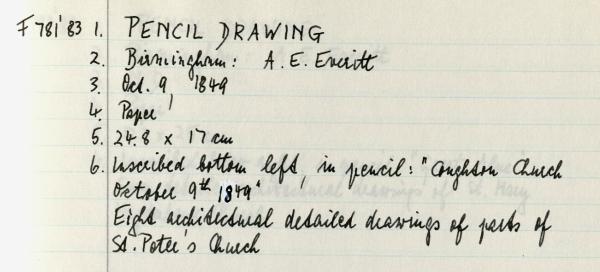 F781'83 1. PENCIL DRAWING
2. Birmingham: A. E. Everitt
3. Oct. 9, 1849
4. Paper
5. 24.8 x 17 cm
6. Inscribed bottom left, in pencil: "Coughton Church
October 9th 1849"
Eight architectural detailed drawings of parts of
St. Peter's Church